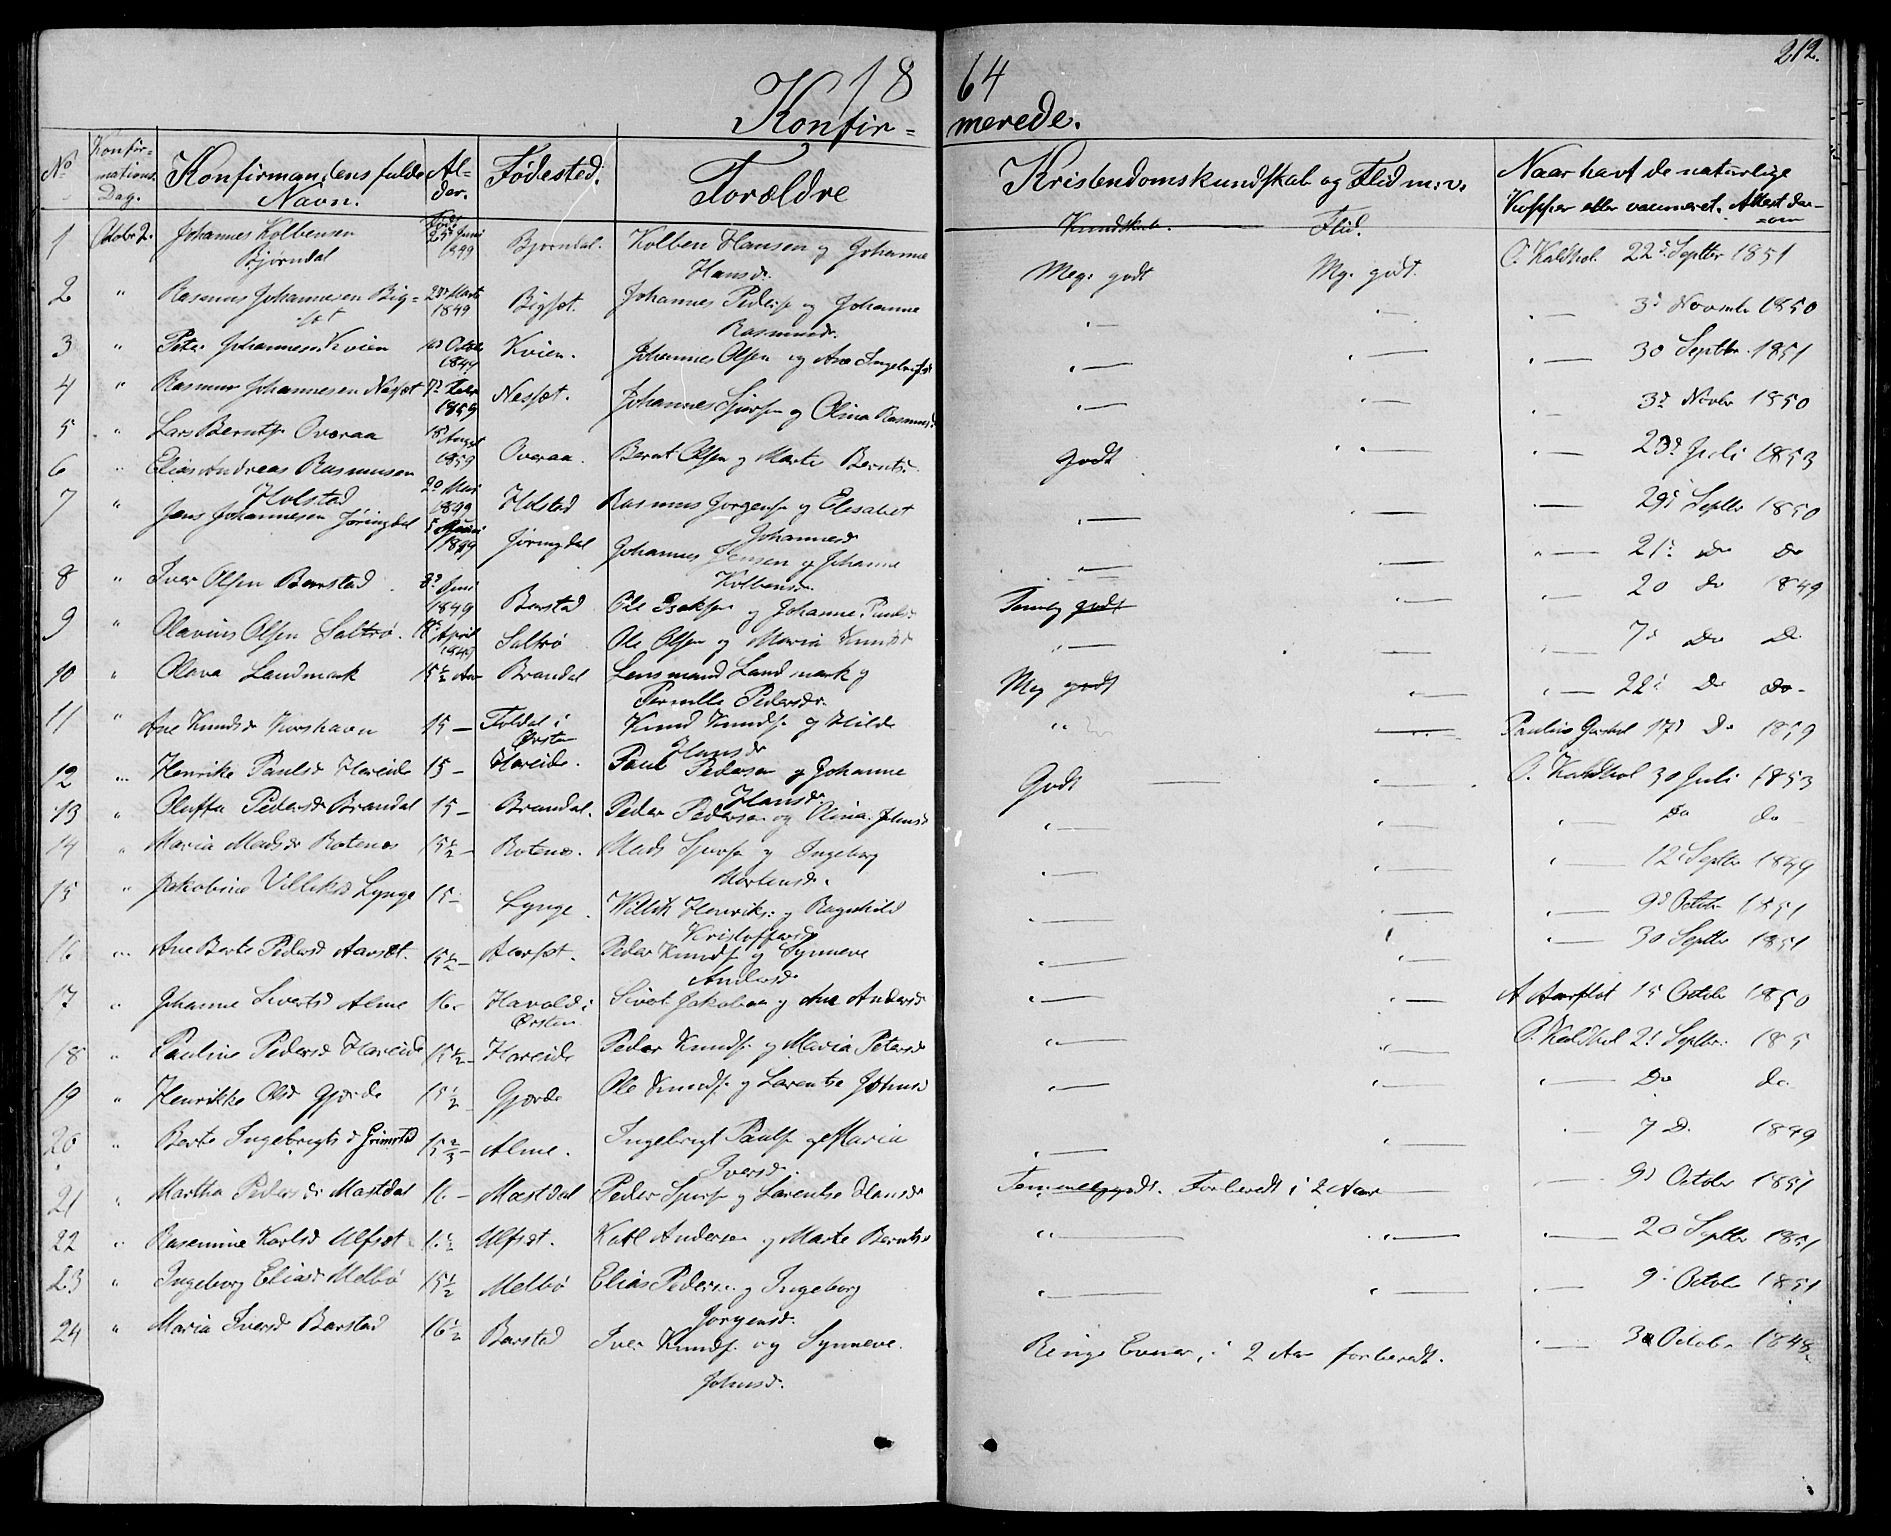 18 64
212.
Konfir= merede.
No Konfir= mations Dag. Konfirmandens fulde Navn. Al= der. Fødested. Forældre Kristendomskundskab og Flid m: v. Naar havt de naturlige Kopper eller vaccineret. Attest der= om
Kundskab. Flid.
1 Octob 2. Johannes Kolbensen Bjørndal Født Juni 1849 Bjørndal. Kolben Hansen og Johanne Hansd. Meg: godt Mg. godt. O. Kaldhol 22d Septbr 1851
2 " Rasmus Johannesen Big= set Marts 1849 Bigset. Johannes Peders og Johanne Rasmusd. " — " — " — 3d Novemb 1850
3 " Peter Johannesen Kvien Octobr 1849 Kvien. Johannes Olsen og Ane Ingebrigtsd " — " — " — 30 Septbr. 1851
4 " Rasmus Johannesen Nesset 7d Nesset. Johannes Sjursen og Olina Rasmusd " — " — " — 3d Novbr 1850
5 " Lars Bernts Overaa 18 August Overaa. Bernt Olsen og Marte Berntsd. Godt " — " — 23d Juli 1853
6 " Elias Andreas Rasmusen Holstad 20 Mai 1849 Holstad Rasmus Jørgens og Elisabet Johannesd " — — " — 29d Septbr 1850
7 " Jens Johannesen Jøringdal 1849 Jøringdal Johannes Jensen og Johanne Kolbensd. " — " — " — 21d Do Do
8 " Iver Olsen Barstad. 8d Juni 1849 Barstad Ole Isaks og Johanne Paulsd Temlig godt " — " — 20 do 1849
9 " Olavius Olsen Saltrø. April Saltrø Ole Olsen og Maria Knudsd " — " — " — 7d Do D.
10 " Olava Landmark 15½ Aar Brandal Lensmand Landmark og Pernille Pedersdr. Meg godt " — " — 22d Do Do-
11 " Ane Knudsd Korshavn 15 — Foldal i Ørsten Knud Knuds og Hilde Hansd " — Paulus 17d Do 1859
12 " Henrike Paulsd Hareide 15 — Hareide. Paul Pedersen og Johanne Hansdr Godt — " — O. Kaldhol 30 Juli 1853
13 " Oluffa Pedersd Brandal 15 — Brandal. Peder Pedersen og Olina Johnsd " — " — " Do do
14 " Maria Madsdr Rotenes 15½ — Rotenes. Mads Sjurs og Ingeborg Mortensd. " — " — " — 12 Septbr 1849
15 " Jakobine Villiksd Lynge 15 — Lynge. Willik Henriks. og Ragnhild Kristoffersd " — " — " — 9d Octobr 1851
16 " Ane Berte Pedersd Aarsæt. 15½ — Aarset. Peder Knuds og Synneve Andersd " — " — " — 30 Septbr 1851
17 " Johanne Sivertsd Alme 16. Havold i Ørsten Sivert Jakobsen og Ane Andersd " — " — A Aarflot 15 Octobr 1850
18 " Pauline Pedersd Hareide 15½ — Hareide Peder Knuds og Maria Petersd " — " — O. Kaldhol 21 Septbr. 185
19 " Henrikke Olsd Gjerde 15½ — Gjerde Ole Knuds og Larentse Johnsd " — " — " — Do do
20 " Berte Ingebrigtsd Grimstad 15⅔ — Alme. Ingebrigt Pauls og Maria Iversd. " — " — " — 7 D. 1849
21 " Martha Pedersdr Mastdal 16 — Mastdal Peder Sjurs og Larentse Hansd Temmelig godt. Forberedt i 2 Aar — " — 9d Octobr 1851
22 " Rasmine Karlsd Ulfset Ulfset. Karl Andersen og Marte Berntsd " — " — " — 20 Septbr 1851
23 " Ingeborg Eliasd Melbø 15½ Melbø Elias Pedersen og Ingeborg Jørgensd. " — " — " — 9d Octobr 1851
24 " Maria Iversd Barstad 16½ Barstad Iver Knuds og Synneve. Johnsd. Ringe Evner, i 2 Aar forberedt. " — 30 Octobr 1848